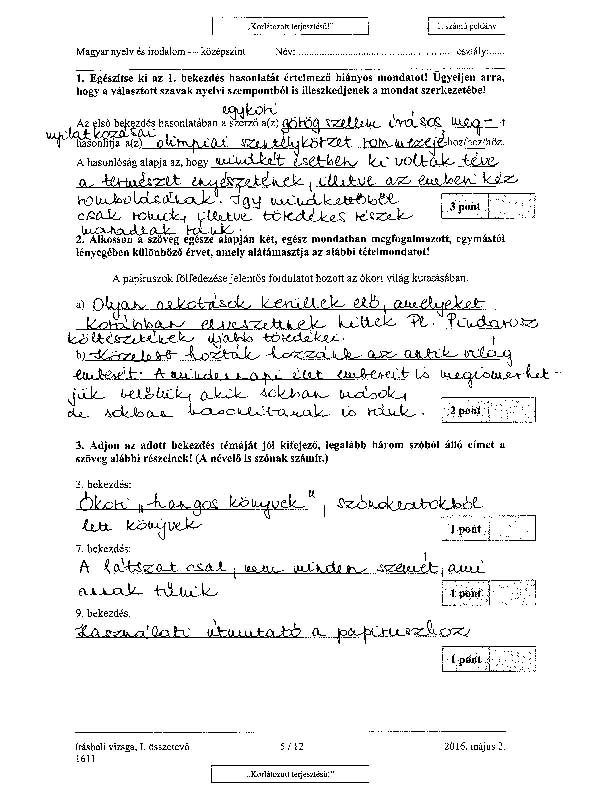 „Korlátozott terjesztésű!”
1. számú példány
Magyar nyelv és irodalom — középszint Név: osztály:
1. Egészítse ki az 1. bekezdés hasonlatát értelmező hiányos mondatot! Ügyeljen arra,
hogy a választott szavak nyelvi szempontból is illeszkedjenek a mondat szerkezetébe!
egykori
Az első bekezdés hasonlatában a szerző a(z) görög szellem írásos meg- t
nyilatkozásai
hasonlítja a(z) olimpiai szentélykörzet rommezejé hoz/hez/höz.
A hasonlóság alapja az, hogy mindkét esetben ki voltak téve
a természet enyészetének, illetve az emberi kéz
rombolásának. Így mindkettőből
csak romok, illetve töredékes részek
3 pont
maradtak ránk.
2. Alkosson a szöveg egésze alapján két, egész mondatban megfogalmazott, egymástól
lényegében különböző érvet, amely alátámasztja az alábbi tételmondatot!
A papiruszok fölfedezése jelentős fordulatot hozott az ókori világ kutatásában.
a) Olyan alkotások kerültek elő, amelyeket
korábban elveszettnek hittek Pl. Pindarosz
költészetének újabb töredékei.
b) Közelebb hozták hozzánk az antik világ
embereit. A mindennapi élet embereit is megismerhet-
jük belőlük, akik sokban mások,
de sokban hasonlítanak is ránk.
2 pont
3. Adjon az adott bekezdés témáját jól kifejező, legalább három szóból álló címet a
szöveg alábbi részeinek! (A névelő is szónak számít.)
3. bekezdés:
Ókori „hangos könyvek", szónoklatokból
lett könyvek
1 pont
7. bekezdés:
A látszat csal, nem minden szemét, ami
annak tűnik
1 pont
9. bekezdés.
Használati útmutató a papíruszhoz
1 pont
írásbeli vizsga, I. összetevő 5 / 12 2016. május 2.
1611
„Korlátozott terjesztésű!”